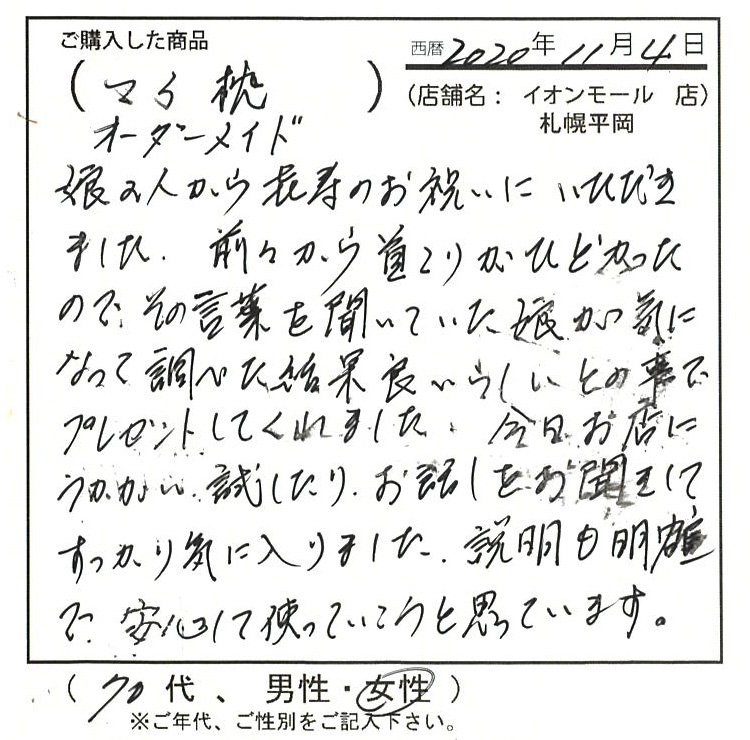 ご購入した商品
西暦 2020年 11月 4日
(マイ枕)
(店舗名： イオンモール 店)
札幌平岡
オーダーメイド
娘2人から長寿のお祝いにいただき
ました。前々から首こりがひどかった
ので、その言葉を聞いていた娘が気に
なって調べた結果良いらしいとの事で
プレゼントしてくれました。今日お店に
うかがい、試したり、お話しをお聞きして
すっかり気に入りました。説明も明確
で、安心して使っていこうと思っています。
(70代、男性・女性)
※ご年代、ご性別をご記入下さい。